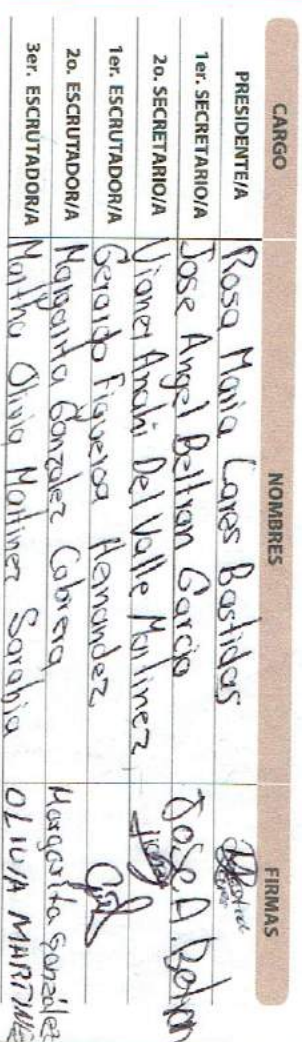 CARGO NOMBRES FIRMAS
PRESIDENTE/A Rosa Maria Lares Bastidas
1er. SECRETARIO/A Jose Angel Beltran Garcia Jose A. Beltran
2o. SECRETARIO/A Vianey Anahi Del Valle Martinez
1er. ESCRUTADOR/A Gerardo Figueroa Hernandez
2o. ESCRUTADOR/A Margarita Gonzalez Cabrera Margarita González
3er. ESCRUTADOR/A Martha Olivia Martinez Sarabia OLIVIA MARTINEZ